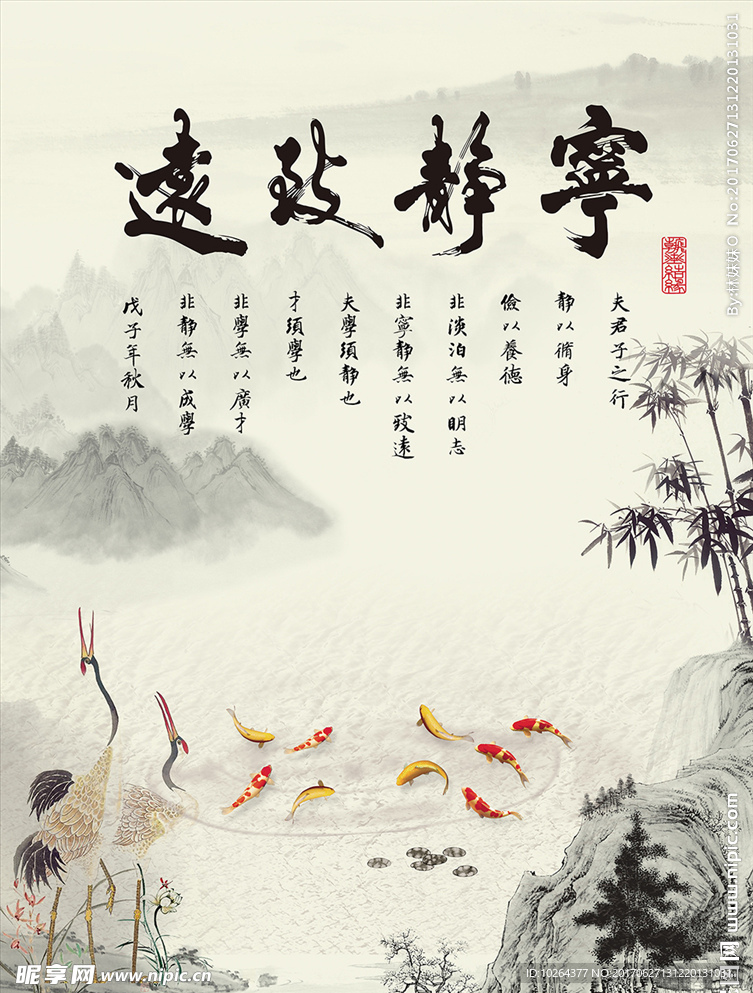 寧靜致遠
夫君子之行
靜以脩身
儉以養德
非淡泊無以明志
非寧靜無以致遠
夫學須靜也
才須學也
非學無以廣才
非靜無以成學
戊子年秋月
By林妹妹O No:20170627131220131031
www.nipic.com
昵享网 www.nipic.cn
ID:10264377 NO:20170627131220131031